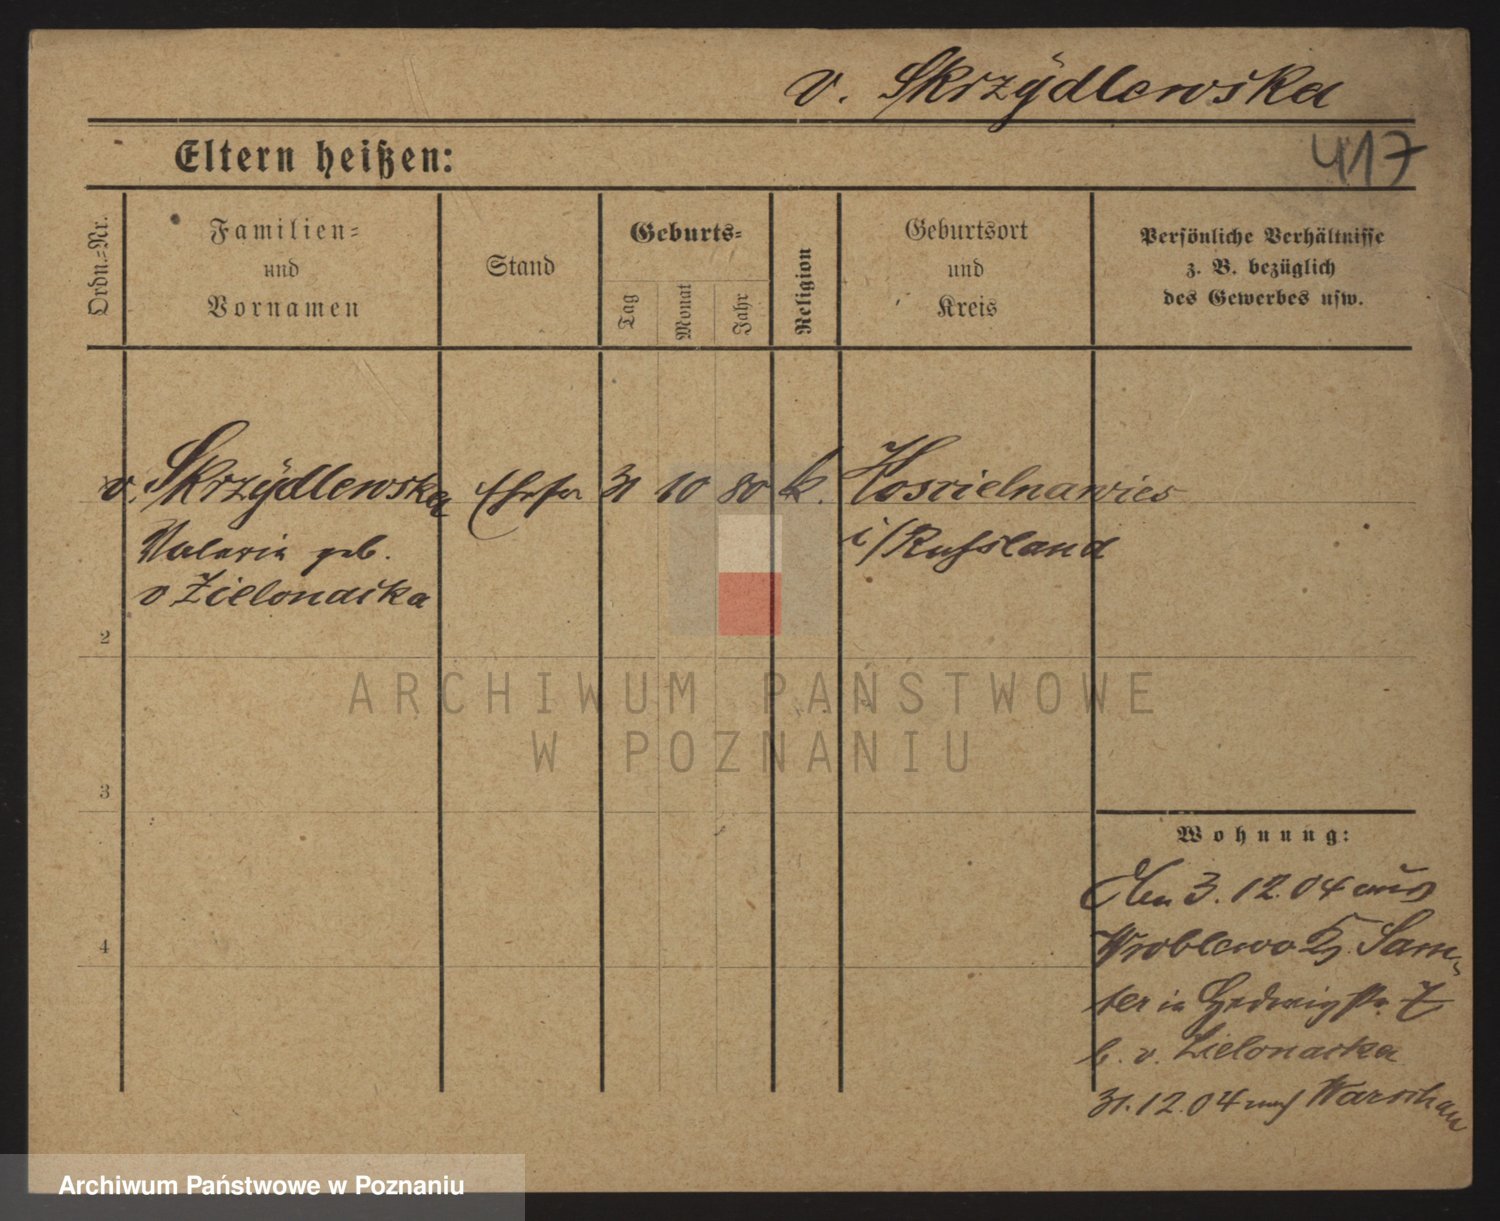 v. Skrzÿdlewska
417
Eltern heißen:
Ordn.-Nr.
Familien-
und
Vornamen
Stand
Geburts-
Tag
Monat
Jahr
Religion
Geburtsort
und
Kreis
Persönliche Verhältnisse
z. B. bezüglich
des Gewerbes usw.
v. Skrzÿdlewska Ehefr 31 10 80 k. Koscielnawies
Valeria geb. i/Russland
v Zielonacka
2
3
4
Wohnung:
3.12.04 aus
Wroblewo Kr. Sam-
ter in Hedwigstr. 7
b. v. Zielonacka
31.12.04 nach Warschau
ARCHIWUM PAŃSTWOWE
W POZNANIU
Archiwum Państwowe w Poznaniu